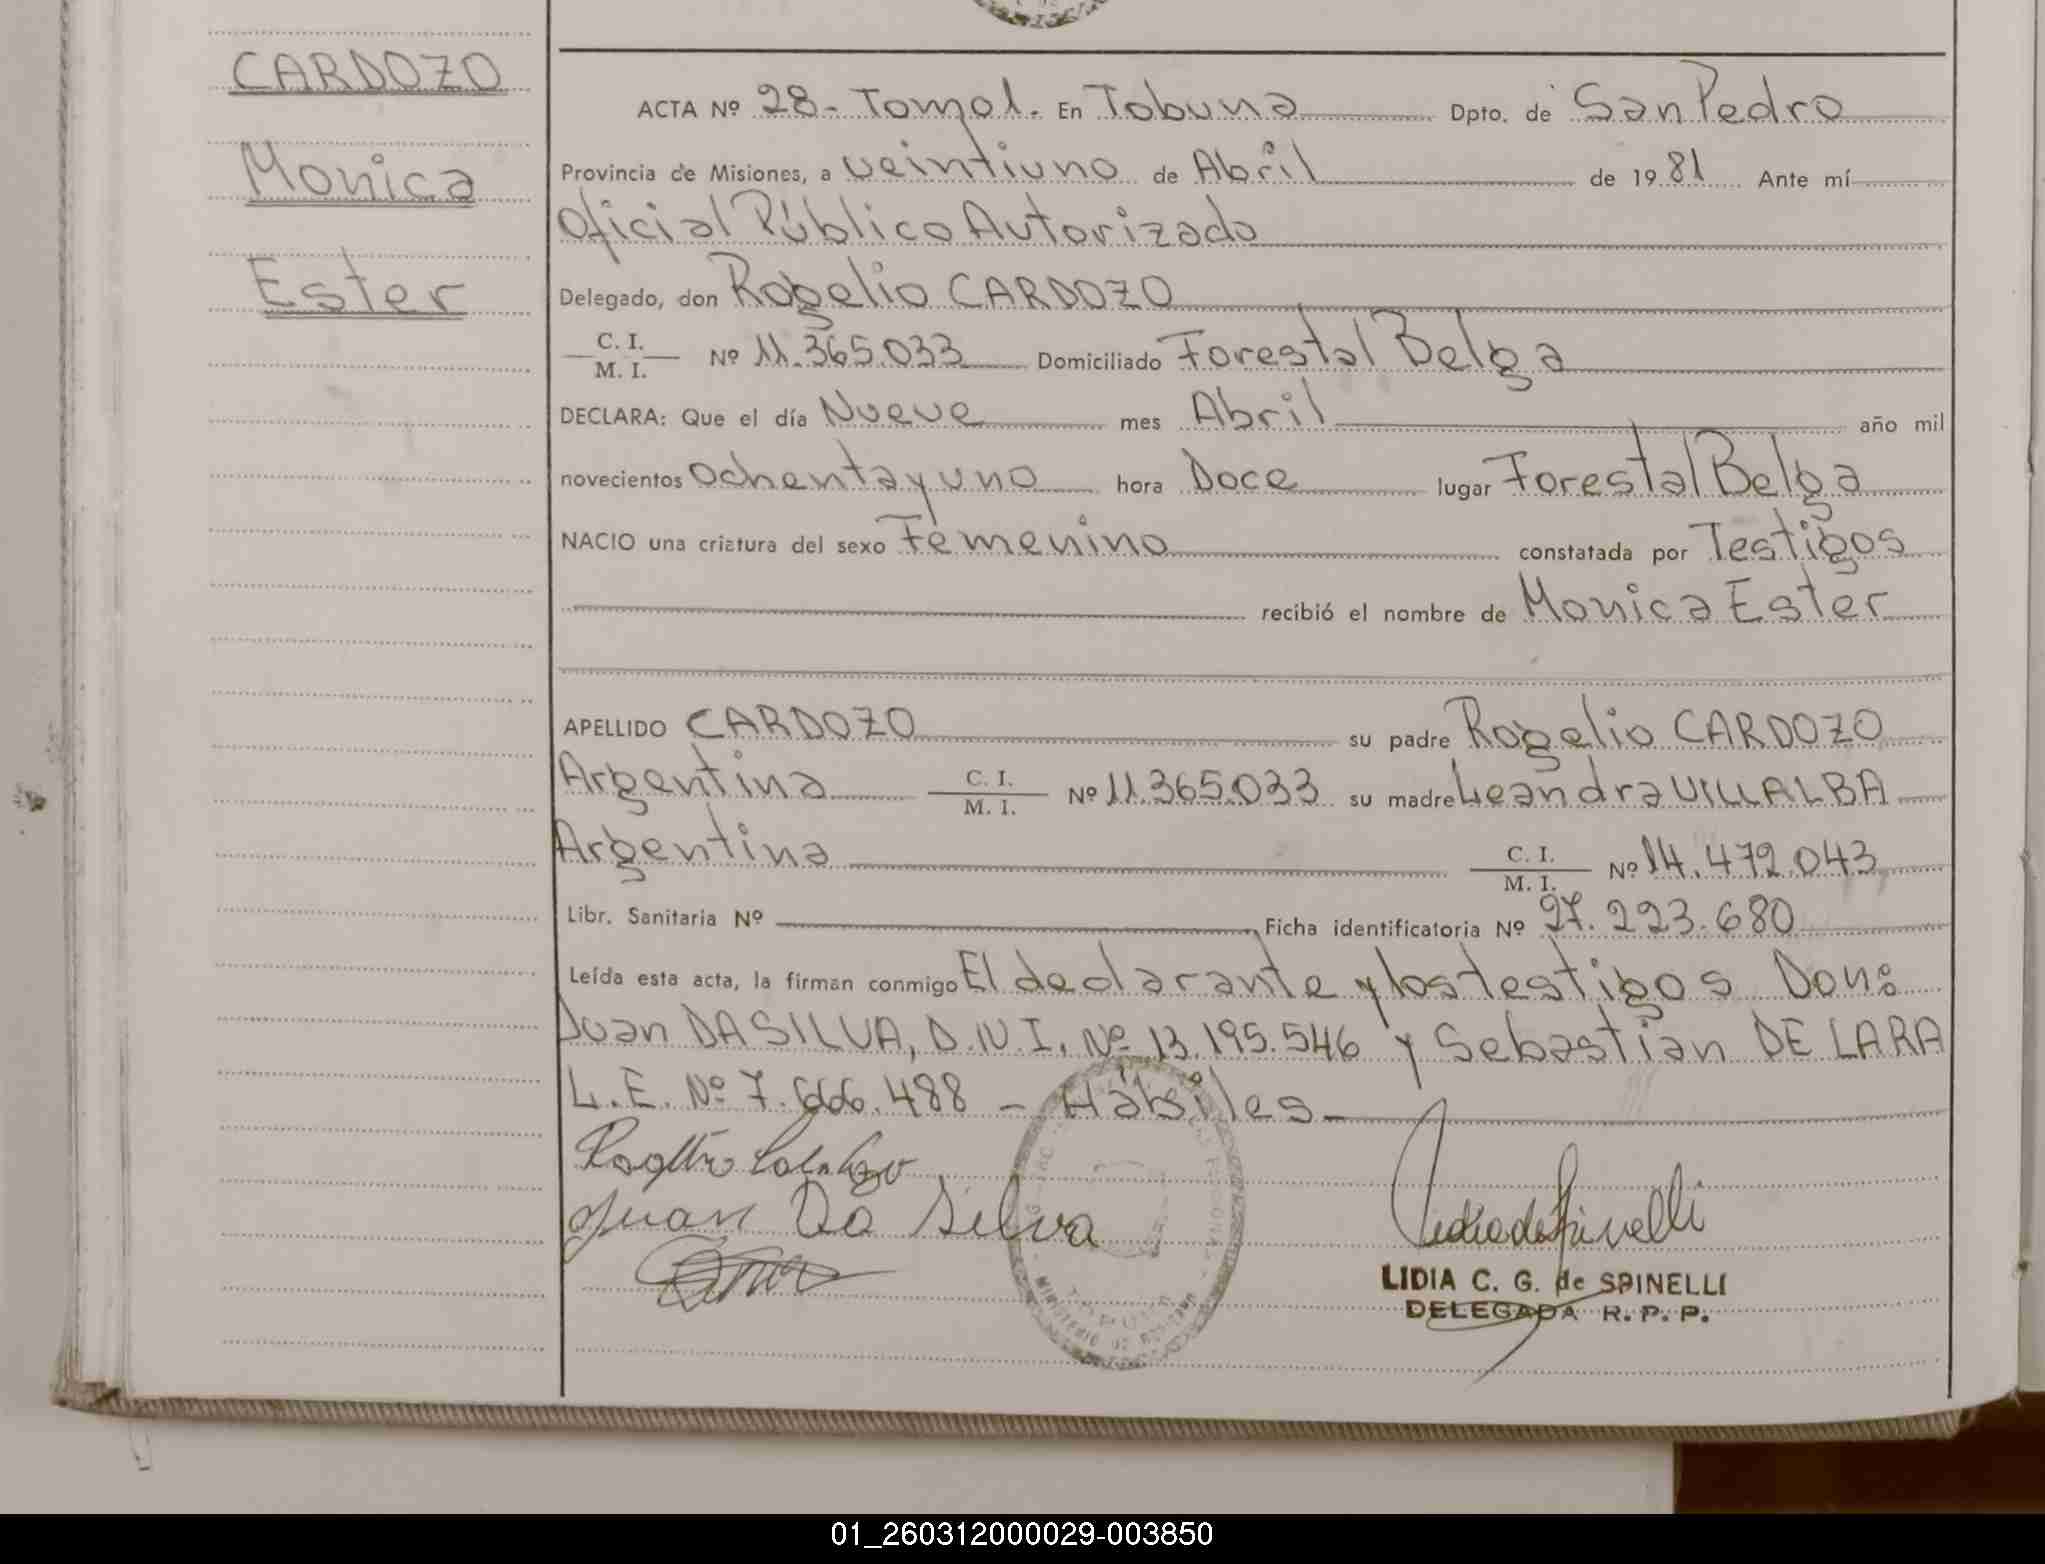 CARDOZO
Monica
Ester
ACTA Nº 28- Tomo 1. En Tobuna Dpto. de San Pedro
Provincia de Misiones, a veintiuno de Abril de 1981 Ante mí
Oficial Público Autorizado
Delegado, don Rogelio CARDOZO
C. I.
M. I. Nº 11.365.033 Domiciliado Forestal Belga
DECLARA: Que el día Nueve mes Abril año mil
novecientos Ochenta y uno hora Doce lugar Forestal Belga
NACIO una criatura del sexo Femenino constatada por Testigos
recibió el nombre de Monica Ester
APELLIDO CARDOZO su padre Rogelio CARDOZO
Argentina C. I. M. I. Nº 11.365.033 su madre Leandra VILLALBA
Argentina C. I. M. I. Nº 14.472.043
Libr. Sanitaria Nº Ficha identificatoria Nº 27.223.680
Leída esta acta, la firman conmigo El declarante y los testigos Don:
Juan DA SILVA, D.N.I. Nº 13.195.546 y Sebastian DE LARA
L.E. Nº 7.666.488 - Hábiles-
Juan Da Silva
Lidia de Spinelli
LIDIA C. G. de SPINELLI
DELEGADA R. P. P.
MINISTERIO DE
01_260312000029-003850